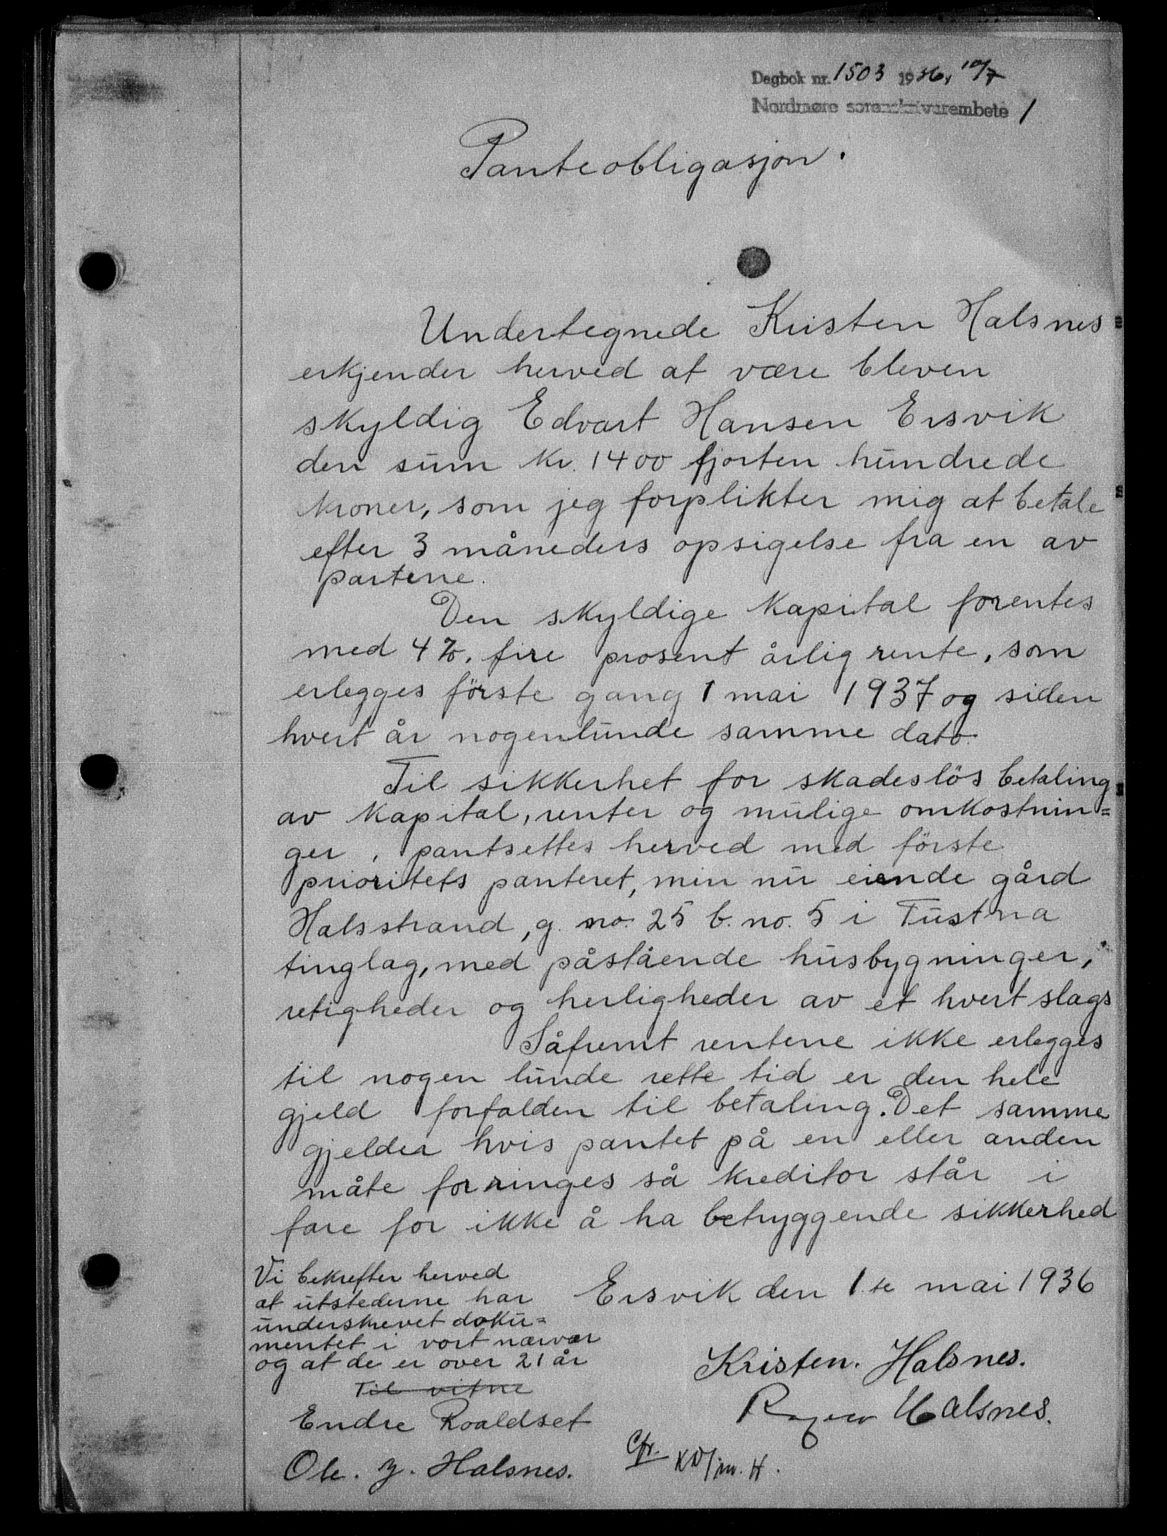 Dagbok nr. 1503 1936, 10/7
Nordmøre sorenskriverembete 1
Panteobligasjon.
Undertegnede Kristen Halsnes
erkjender herved at være bleven
skyldig Edvart Hansen Ersvik
den sum kr. 1400 fjorten hundrede
kroner, som jeg forplikter mig at betale
efter 3 måneders opsigelse fra en av
partene.
Den skyldige kapital forentes
med 4%. fire prosent årlig rente, som
erlegges förste gang 1 mai 1937 og siden
hvert år nogenlunde samme dato.
Til sikkerhet for skadeslös betaling
av kapital, renter og mulige omkostnin=
ger, pantsettes herved med förste
prioritets panteret, min nu eiende gård
Halsstrand, g. no. 25 b. no. 5 i Tustna
tinglag, med påstående husbygninger,
retigheder og herligheder av et hvert slags
Såfremt rentene ikke erlegges
til nogen lunde rette tid er den hele
gjeld forfalden til betaling. Det samme
gjelder hvis pantet på en eller anden
måte forringes så kreditor står i
fare for ikke å ha betryggende sikkerhed
Ersvik den 1ste mai 1936
Kristen. Halsnes.
Halsnes.
Vi bekrefter herved
at utstederne har
underskrevet doku=
mentet i vort nærvær
og at de er over 21 år
Til vitne
Endre Roaldset
Ole. J. Halsnes.
Cfr.